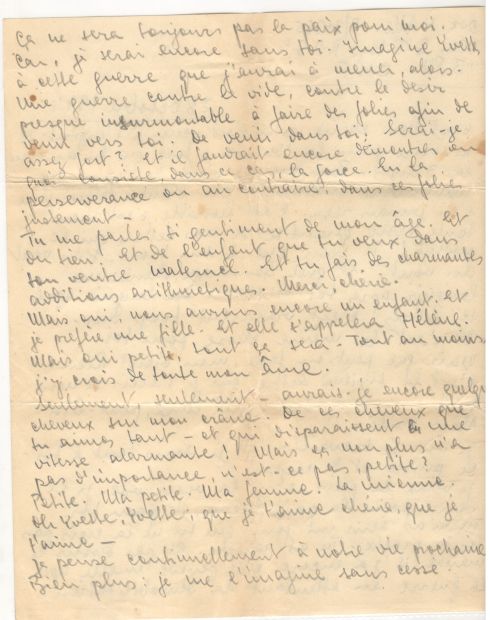 Ça ne sera toujours pas la paix pour moi.
Car, je serai encore sans toi. Imagine Yvette,
à cette guerre que j'aurai à mener, alors.
Une guerre contre le vide, contre le desir
presque insurmontable à faire des folies afin de
venir vers toi. De venir dans toi. Serai-je
assez fort? Et il faudrait encore démontrer en
quoi consiste, dans ce cas, la force. En la
perseverance ou au contraire, dans ces folies
justement -
Tu me parles si gentiment de mon âge. Et
du tien. Et de l'enfant que tu veux. Dans
ton ventre maternel. Et tu fais des charmantes
additions arithmetiques. Merci, chérie.
Mais oui nous aurons encore un enfant. Et
je préfère une fille. Et elle s'appelera Hélène.
Mais oui petite, tout ça sera. Tout au moins
j'y crois de toute mon Âme.
Seulement, seulement - aurais-je encore quelqu
cheveux sur mon crâne. De ces cheveux que
tu aimes tant - et qui disparaissent à une
vitesse alarmante! Mais ça non plus n'a
pas d'importance, n'est-ce pas, petite?
Petite. Ma petite. Ma femme. La mienne.
Oh Yvette, Yvette, que je t'aime chérie, que je
t'aime -
Je pense continuellement à notre vie prochaine
Bien plus: je me l'imagine sans cesse.